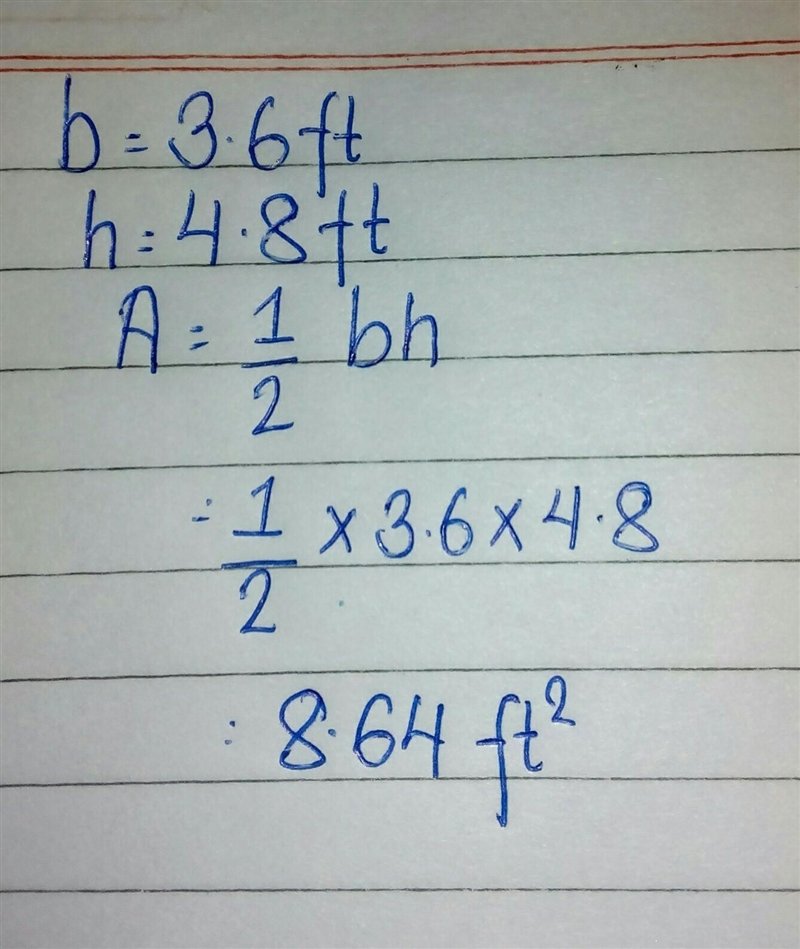 b = 3.6 ft
h = 4.8 ft
A = 1/2 bh
= 1/2 × 3.6 × 4.8
: 8.64 ft²